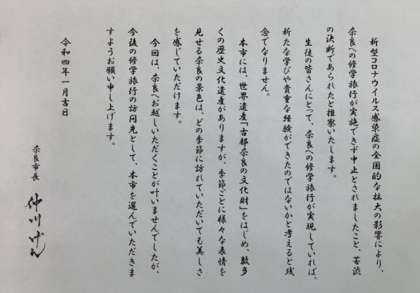 新型コロナウイルス感染症の全国的な拡大の影響により、
奈良への修学旅行が実施できず中止とされましたこと、苦渋
の決断であられたと推察いたします。
生徒の皆さんにとって、奈良への修学旅行が実現していれば、
新たな学びや貴重な経験ができたのではないかと考えると残
念でなりません。
本市には、世界遺産「古都奈良の文化財」をはじめ、数多
くの歴史文化遺産がありますが、季節ごとに様々な表情を
見せる奈良の景色は、どの季節に訪れていただいても美しさ
を感じていただけます。
今回は、奈良へお越しいただくことが叶いませんでしたが、
今後の修学旅行の訪問先として、本市を選んでいただきま
すようお願い申し上げます。
令和四年一月吉日
奈良市長
仲川げん